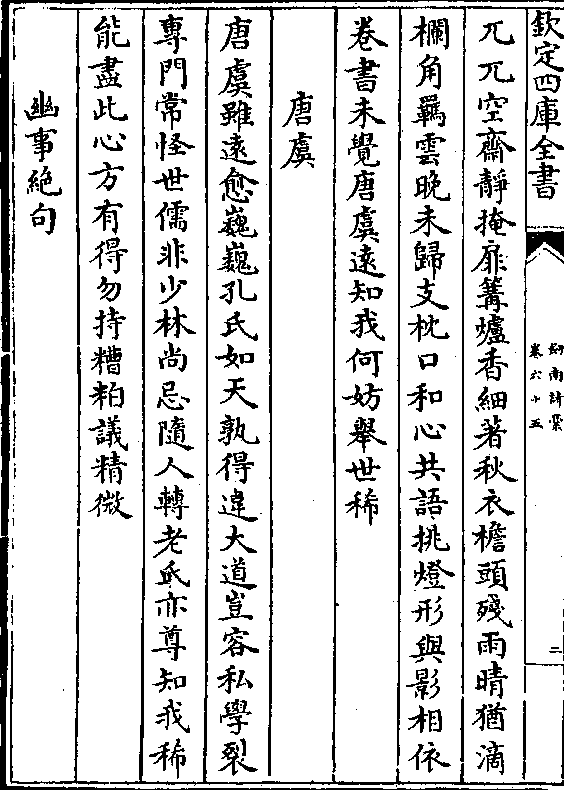 欽定四庫全書
劍南詩槀
卷六十五
二
兀兀空齋靜掩扉篝爐香細著秋衣檐頭殘雨晴猶滴
欄角羈雲晚未歸支枕口和心共語挑燈形與影相依
卷書未覺唐虞遠知我何妨舉世稀
唐虞
唐虞雖遠愈巍巍孔氏如天孰得違大道豈容私學裂
專門常怪世儒非少林尚忌隨人轉老氏亦尊知我稀
能盡此心方有得勿持糟粕議精微
幽事絶句